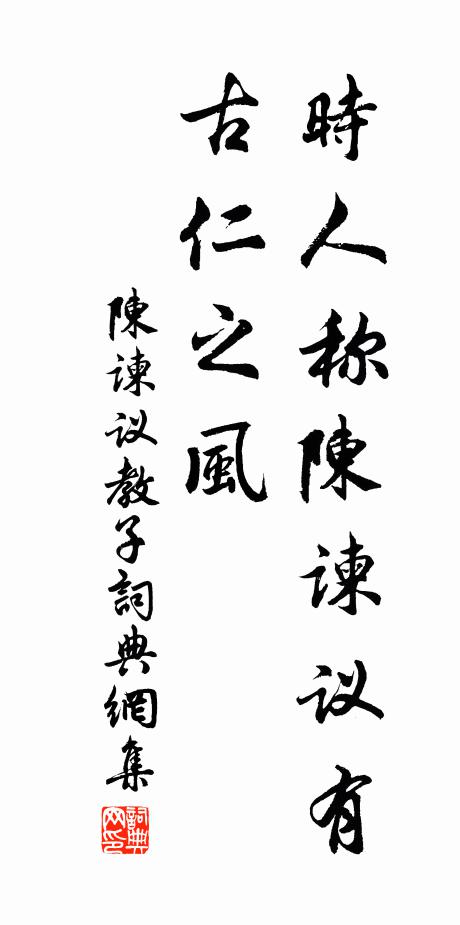 時人称陳諫议有
古仁之風
陳諫议教子詞典網集
詞典网印